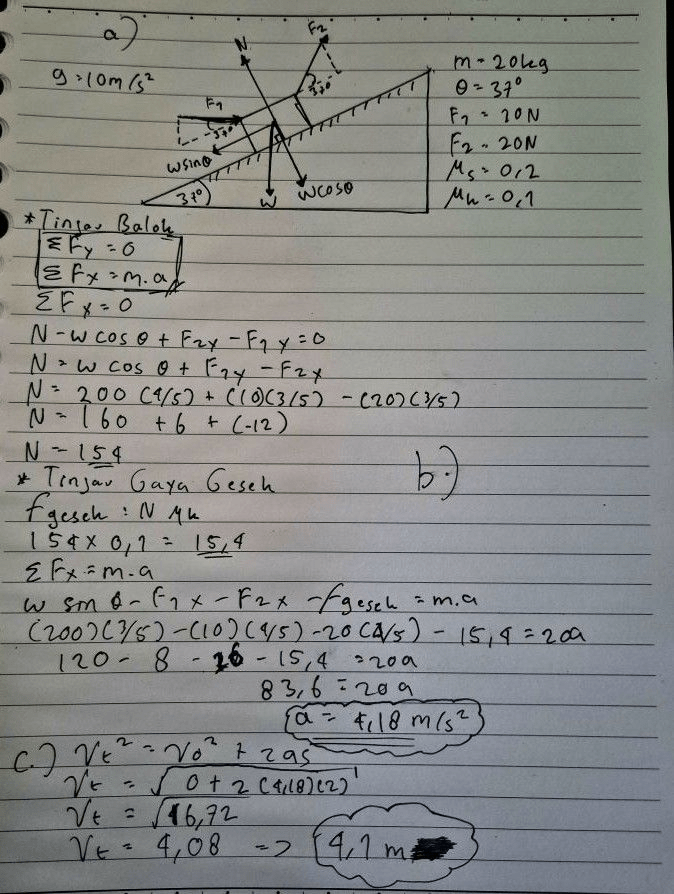 a)
g = 10 m/s²
N
F₂
37°
F₁
37°
w sinθ
w
w cosθ
37°
m = 20 kg
θ = 37°
F₁ = 10N
F₂ = 20N
μs = 0,2
μk = 0,1
* Tinjau Balok
ΣFy = 0
ΣFx = m.a
ΣFy = 0
N - w cos θ + F₂y - F₁y = 0
N = w cos θ + F₁y - F₂y
N = 200 (4/5) + (10)(3/5) - (20)(3/5)
N = 160 + 6 + (-12)
N = 154
b.)
* Tinjau Gaya Gesek
fgesek : N μk
154 x 0,1 = 15,4
ΣFx = m.a
w sin θ - F₁x - F₂x - fgesek = m.a
(200)(3/5) - (10)(4/5) - 20(4/5) - 15,4 = 20a
120 - 8 - 16 - 15,4 = 20a
83,6 = 20a
a = 4,18 m/s²
c.) Vt² = Vo² + 2as
Vt = √0 + 2(4,18)(2)
Vt = √16,72
Vt = 4,08 => 4,1 m